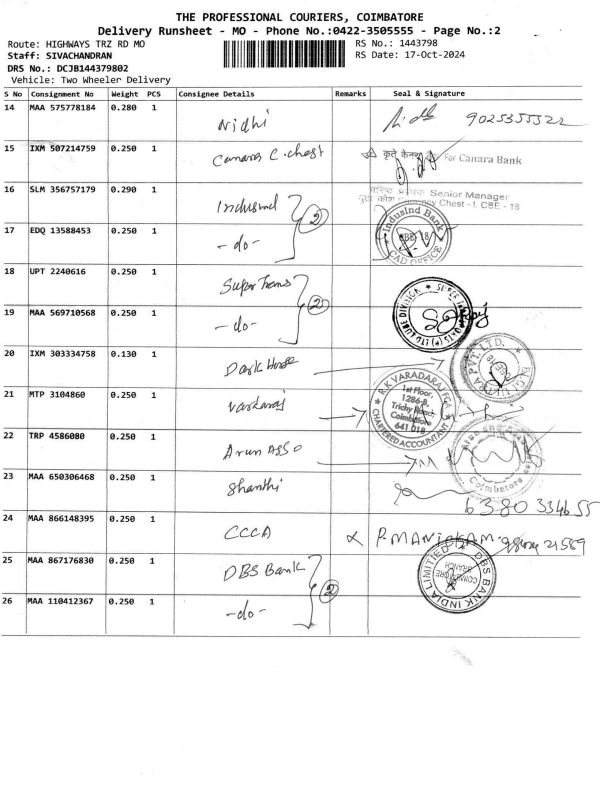 THE PROFESSIONAL COURIERS, COIMBATORE
Delivery Runsheet - MO - Phone No.:0422-3505555 - Page No.:2
Route: HIGHWAYS TRZ RD MO
RS No.: 1443798
Staff: SIVACHANDRAN
RS Date: 17-Oct-2024
DRS No.: DCJB144379802
Vehicle: Two Wheeler Delivery
S No Consignment No Weight PCS Consignee Details Remarks Seal & Signature
14 MAA 575778184 0.280 1 Nidhi
15 IXM 507214759 0.250 1 Canara C.chest कृते केनरा For Canara Bank
Senior Manager
Chest - I, CBE - 18
16 SLM 356757179 0.290 1 Indusind 2
IndusInd Bank
CBE-18
CAD OFFICE
17 EDQ 13588453 0.250 1 -do-
18 UPT 2240616 0.250 1 Super Trans 2
19 MAA 569710568 0.250 1 -do-
LUBE DIVISION
20 IXM 303334758 0.130 1 Dark Horse
PVT. LTD.
21 MTP 3104860 0.250 1 Vardaraj
R.K VARADARAJ FCA
1st Floor,
1286-B,
Trichy Road,
Coimbatore
641 018
CHARTERED ACCOUNTANT
22 TRP 4586080 0.250 1 Arun Asso
Coimbatore
23 MAA 650306468 0.250 1 Shanthi
6380 334655
24 MAA 866148395 0.250 1 CCCA P.MANICKAM
25 MAA 867176830 0.250 1 DBS Bank 2
DBS BANK INDIA LIMITED
COIMBATORE
BRANCH
26 MAA 110412367 0.250 1 -do-